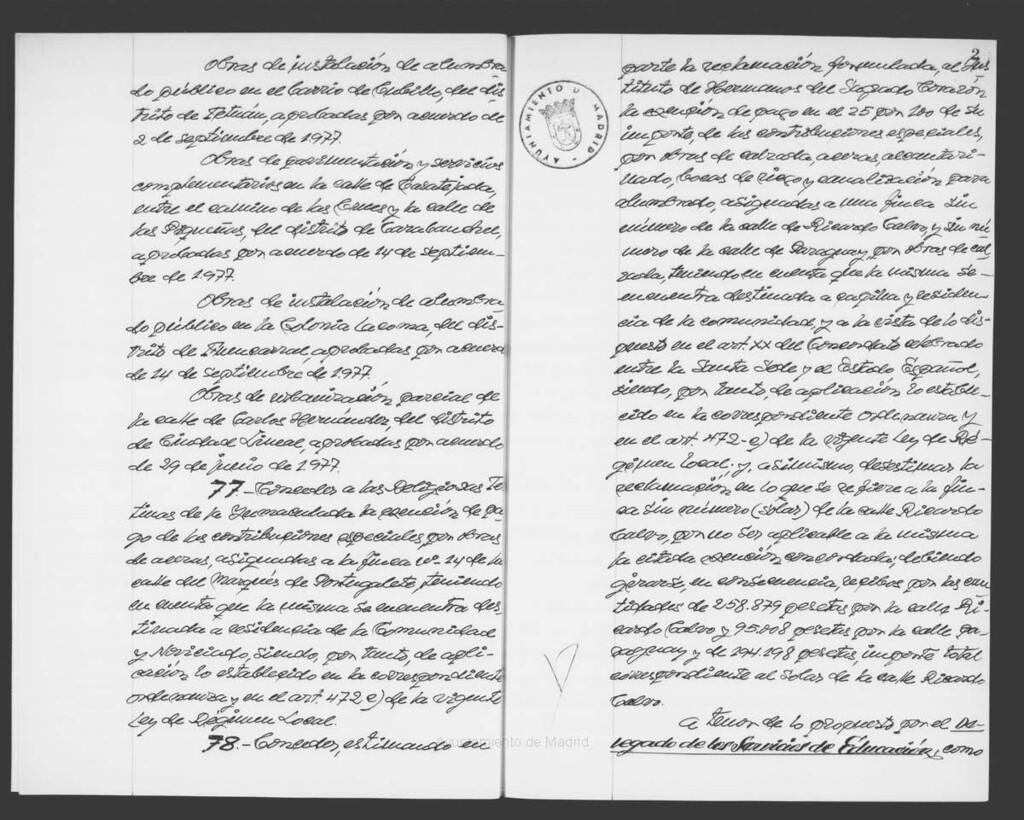 Obras de instalación de alumbra
do público en el barrio de Cubillo, del dis-
trito de Tetuán, aprobadas por acuerdo de
2 de septiembre de 1977.
Obras de pavimentación y servicios
complementarios en la calle de Casatejada,
entre el camino de las Cruces y la calle de
las Pequeñas, del distrito de Carabanchel,
aprobadas por acuerdo de 14 de septiem-
bre de 1977.
Obras de instalación de alumbra
do público en la Colonia Lacoma, del dis-
trito de Fuencarral, aprobadas por acuerdo
de 14 de septiembre de 1977.
Obras de urbanización parcial de
la calle de Carlos Hernández, del distrito
de Ciudad Lineal, aprobadas por acuerdo
de 29 de junio de 1977.
77.- Conceder a las Religiosas Te
tinas de la Inmaculada la exención de pa
go de las contribuciones especiales, por obras
de aceras, asignadas a la finca nº 24 de la
calle del Marqués de Portugalete, teniendo
en cuenta que la misma se encuentra des-
tinada a residencia de la Comunidad
y Noviciado, siendo, por tanto, de apli-
cación lo establecido en la correspondiente
ordenanza y en el art. 472 e) de la vigente
Ley de Régimen Local.
78.- Conceder, estimando en
2
parte la reclamación formulada, al Ins
tituto de Hermanos del Sagrado Corazón
la exención de pago en el 25 por 100 de su
importe, de las contribuciones especiales,
por obras de calzada, aceras, alcantari-
llado, bocas de riego y canalización para
alumbrado, asignadas a una finca sin
número de la calle de Ricardo Calvo, y sin nú
mero de la calle de Paraguay, por obras de cal
zada, teniendo en cuenta que la misma se
encuentra destinada a capilla y residen-
cia de la comunidad, y a la vista de lo dis-
puesto en el art. XX del Concordato celebrado
entre la Santa Sede y el Estado Español,
siendo, por tanto, de aplicación lo estable-
cido en la correspondiente ordenanza y
en el art. 472-e) de la vigente Ley de Ré-
gimen Local; y, asimismo, desestimar la
reclamación en lo que se refiere a la fin-
ca sin número (solar) de la calle Ricardo
Calvo, por no ser aplicable a la misma
la citada exención concordada; debiendo
girarse, en consecuencia, recibos por las can
tidades de 258.879 pesetas por la calle Ri-
cardo Calvo y 95.008 pesetas por la calle Pa-
raguay y de 294.198 pesetas, importe total
correspondiente al solar de la calle Ricardo
Calvo.
A tenor de lo propuesto por el De-
legado de los Servicios de Educación, como
AYUNTAMIENTO D MADRID
Ayuntamiento de Madrid